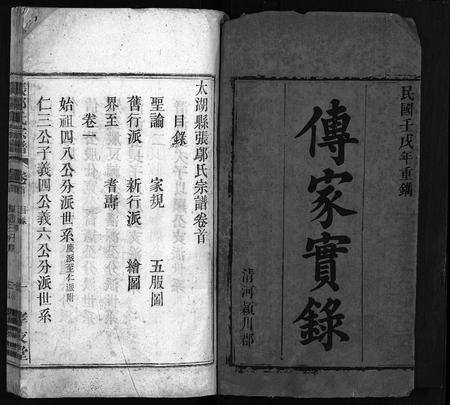 民國壬戌年重鐫
傳家實錄
清河潁川郡
太湖縣張鄔氏宗譜卷首
目錄
聖諭 家規 五服圖
舊行派 新行派 繪圖
界至 耆壽
卷一
始祖四八公分派世系慶派至仁派附
仁三公子義四公義六公分派世系